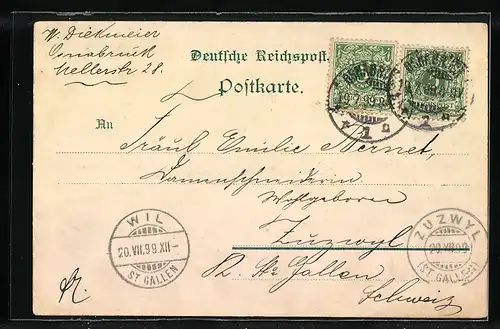 W. Diekmeier
Osnabrück
Mellerstr 28.
Deutsche Reichspost.
Postkarte.
An
Fräul Emilie Nernet,
Damenschneiderin
Wohlgeboren
Zuzwyl
Kt. St. Gallen
Schweiz
WIL
20.VII.99.XII-
ST. GALLEN
ZUZWYL
20.VII.99
(ST. GALLEN)